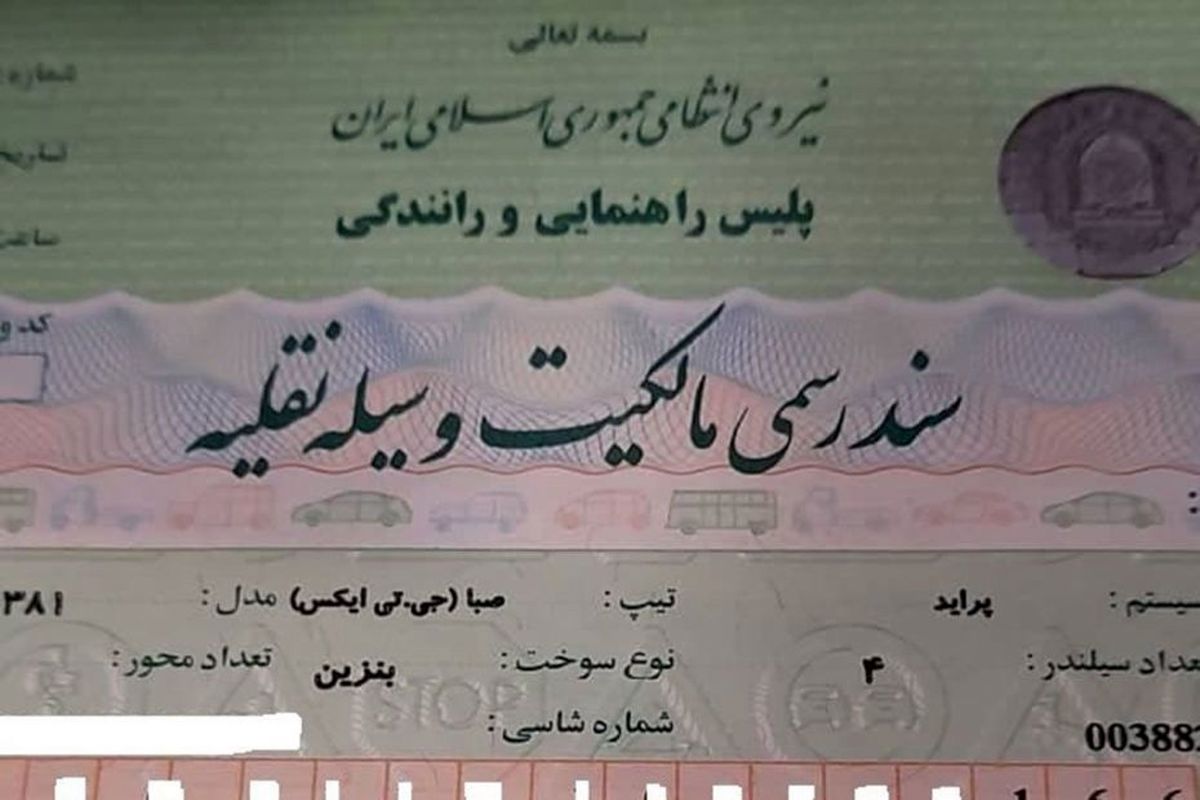 بسمه تعالی
شماره:
نیروی انتظامی جمهوری اسلامی ایران
تاریخ
پلیس راهنمایی و رانندگی
ساعت
کد و
سند رسمی مالکیت وسیله نقلیه
سیستم: پراید تیپ: صبا (جی.تی ایکس) مدل: ۳۸۱
تعداد سیلندر: ۴ نوع سوخت: بنزین تعداد محور:
00388 شماره شاسی:
STOP
1 6 6